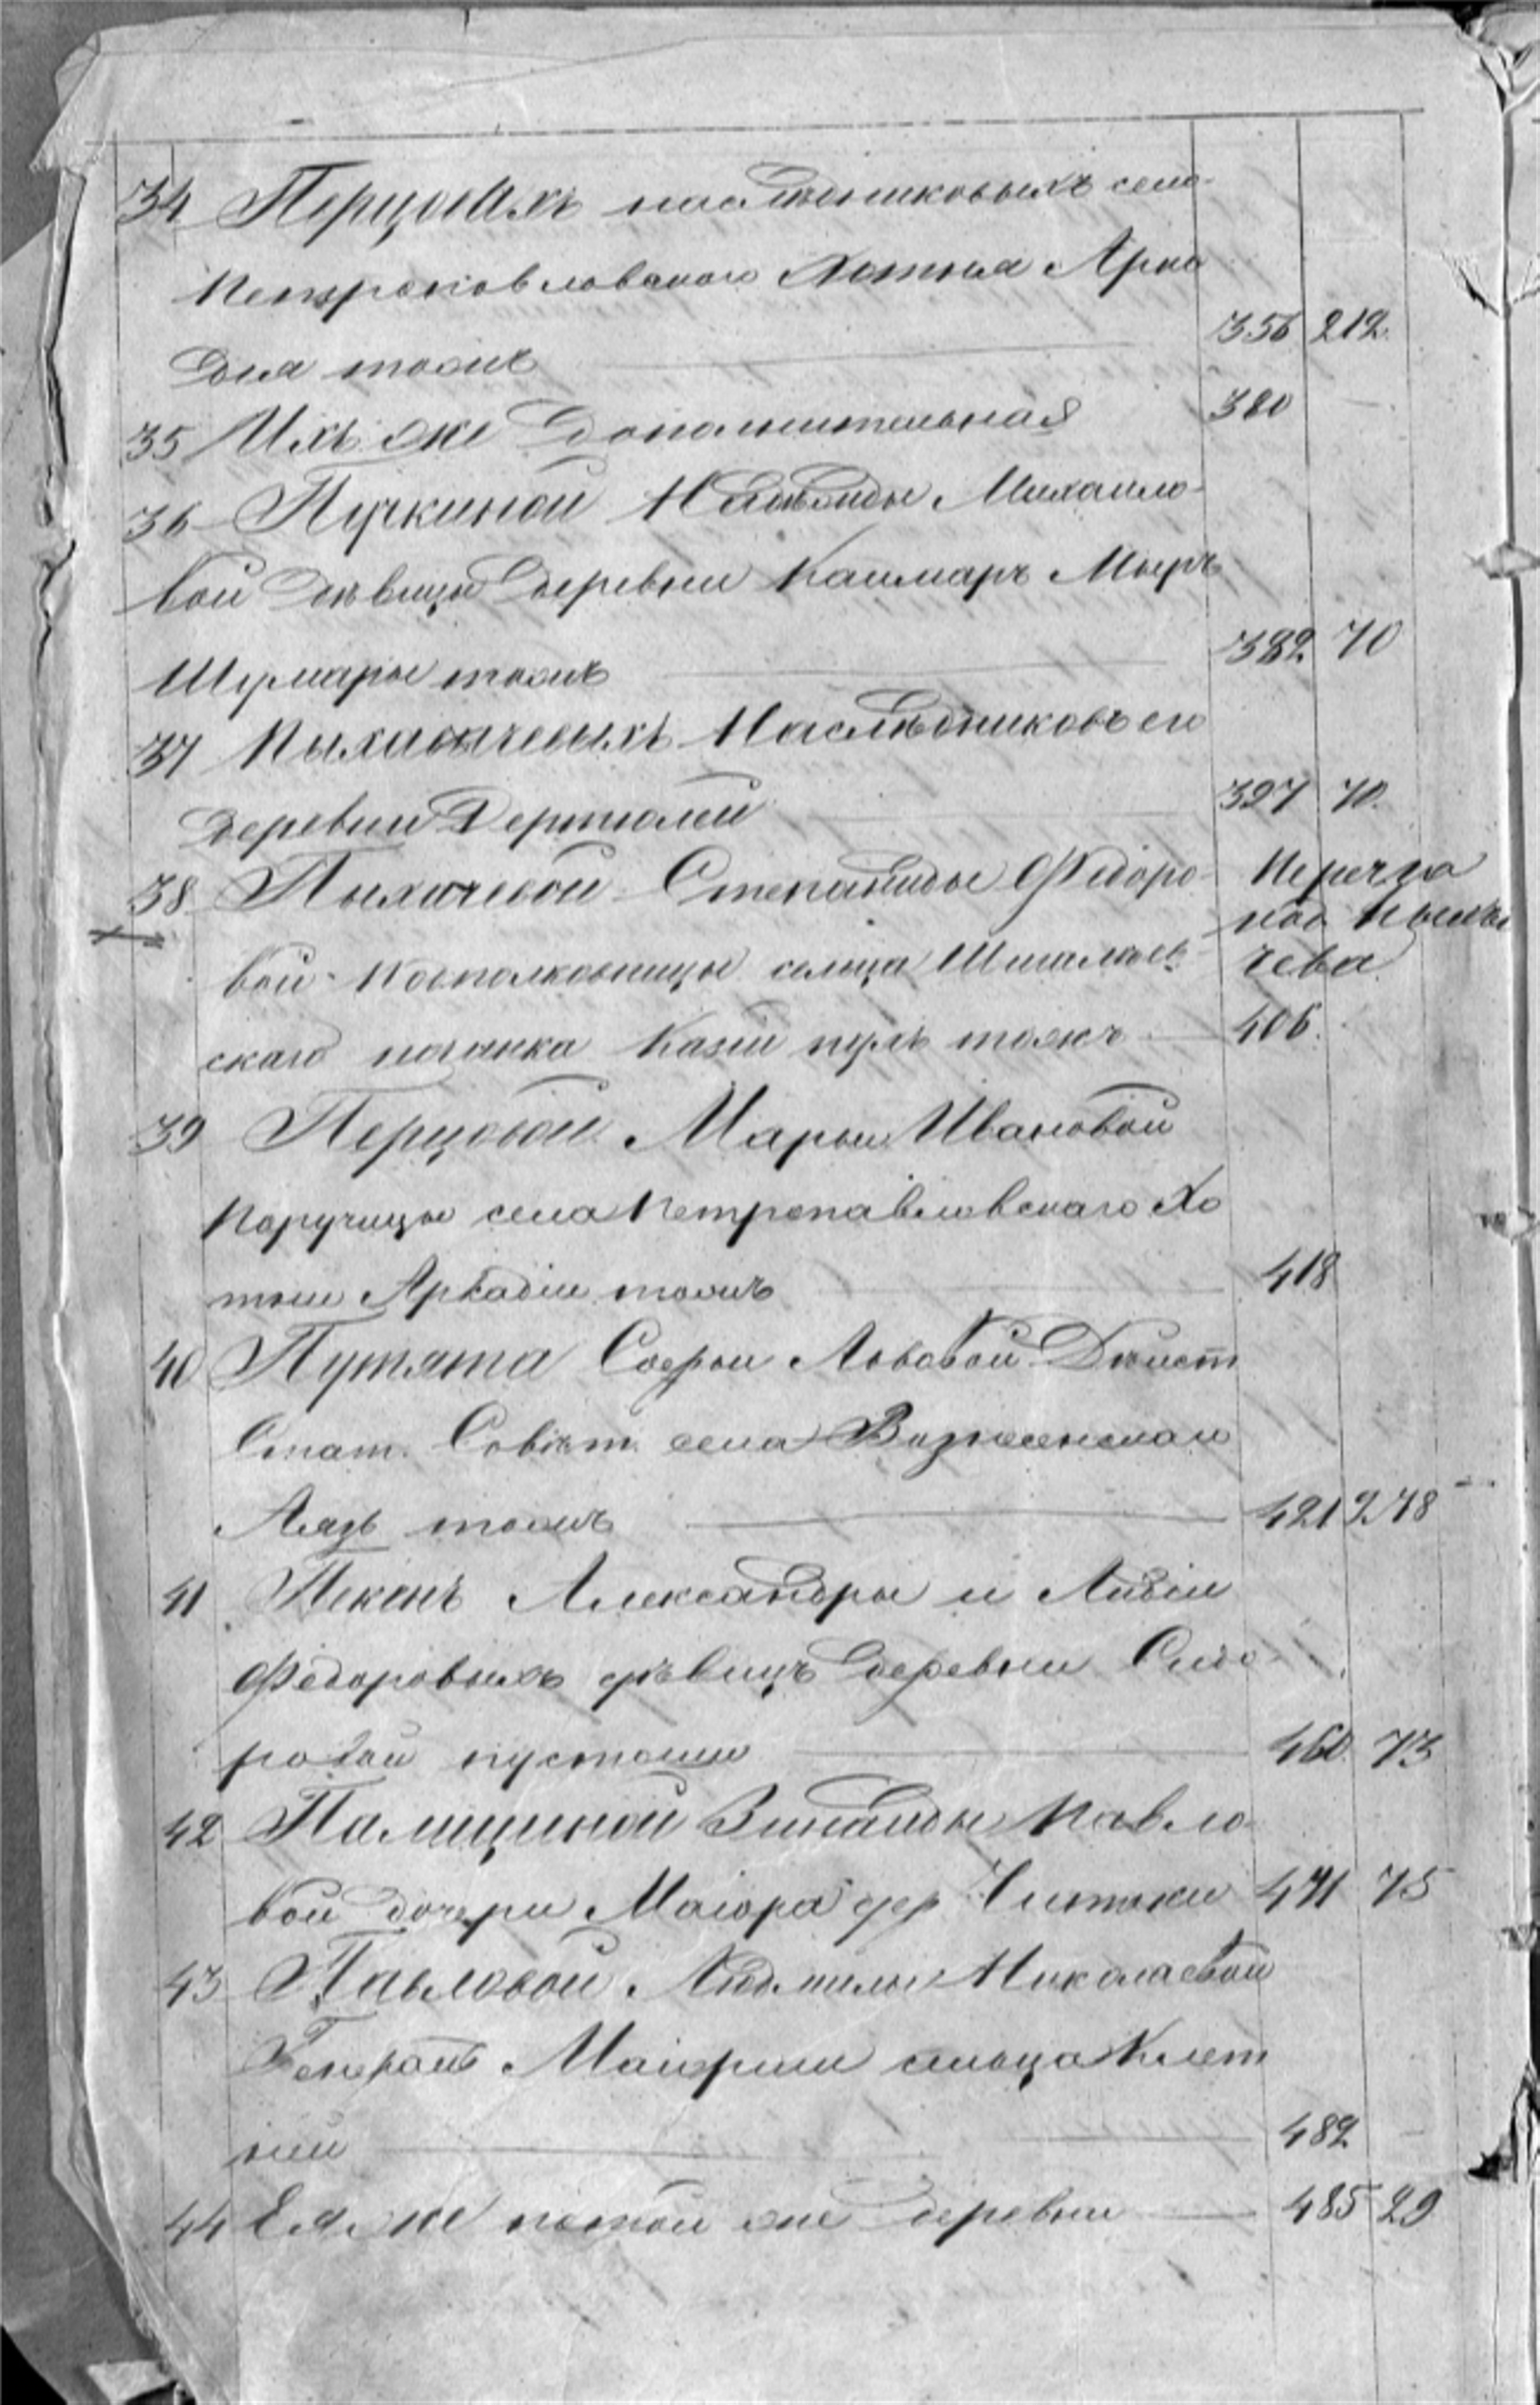 34 Перцовыхъ наслѣдниковыхъ села
Петропавловскаго Хотня Арка
дія тожъ 356 212
35 Ихъ же дополнительная 380 —
36 Пучкиной Михайло-
вой дѣвицы деревни Каимаръ
Шумары тожъ 382 70
37 Пыхачевыхъ Наслѣдниковъ
деревни Дертюлей 397 70
38 Пыхачевой Степаниды Ѳедоро-
вой Подполковницы сельца
скаго починка тожъ 406
39 Перцовой Марьи Ивановой
Поручицы села Петропавловскаго Хо
тни Аркадіи тожъ 418
40 Путята Софьи Львовой Дѣйст
Стат. Совѣт. села Вознесенскаго
тожъ 421 278
41 Пекенъ Александры и Лидіи
Ѳедоровыхъ дѣвицъ деревни Сидо
ровой пустоши 460 73
42 Палициной Зинаиды Павло
вой дочери Маіора дер 471 75
43 Павловой Людмилы Николаевой
Генералъ Маіорши сельца Клет
ней 482 —
44 Ея же по той же деревни 485 29